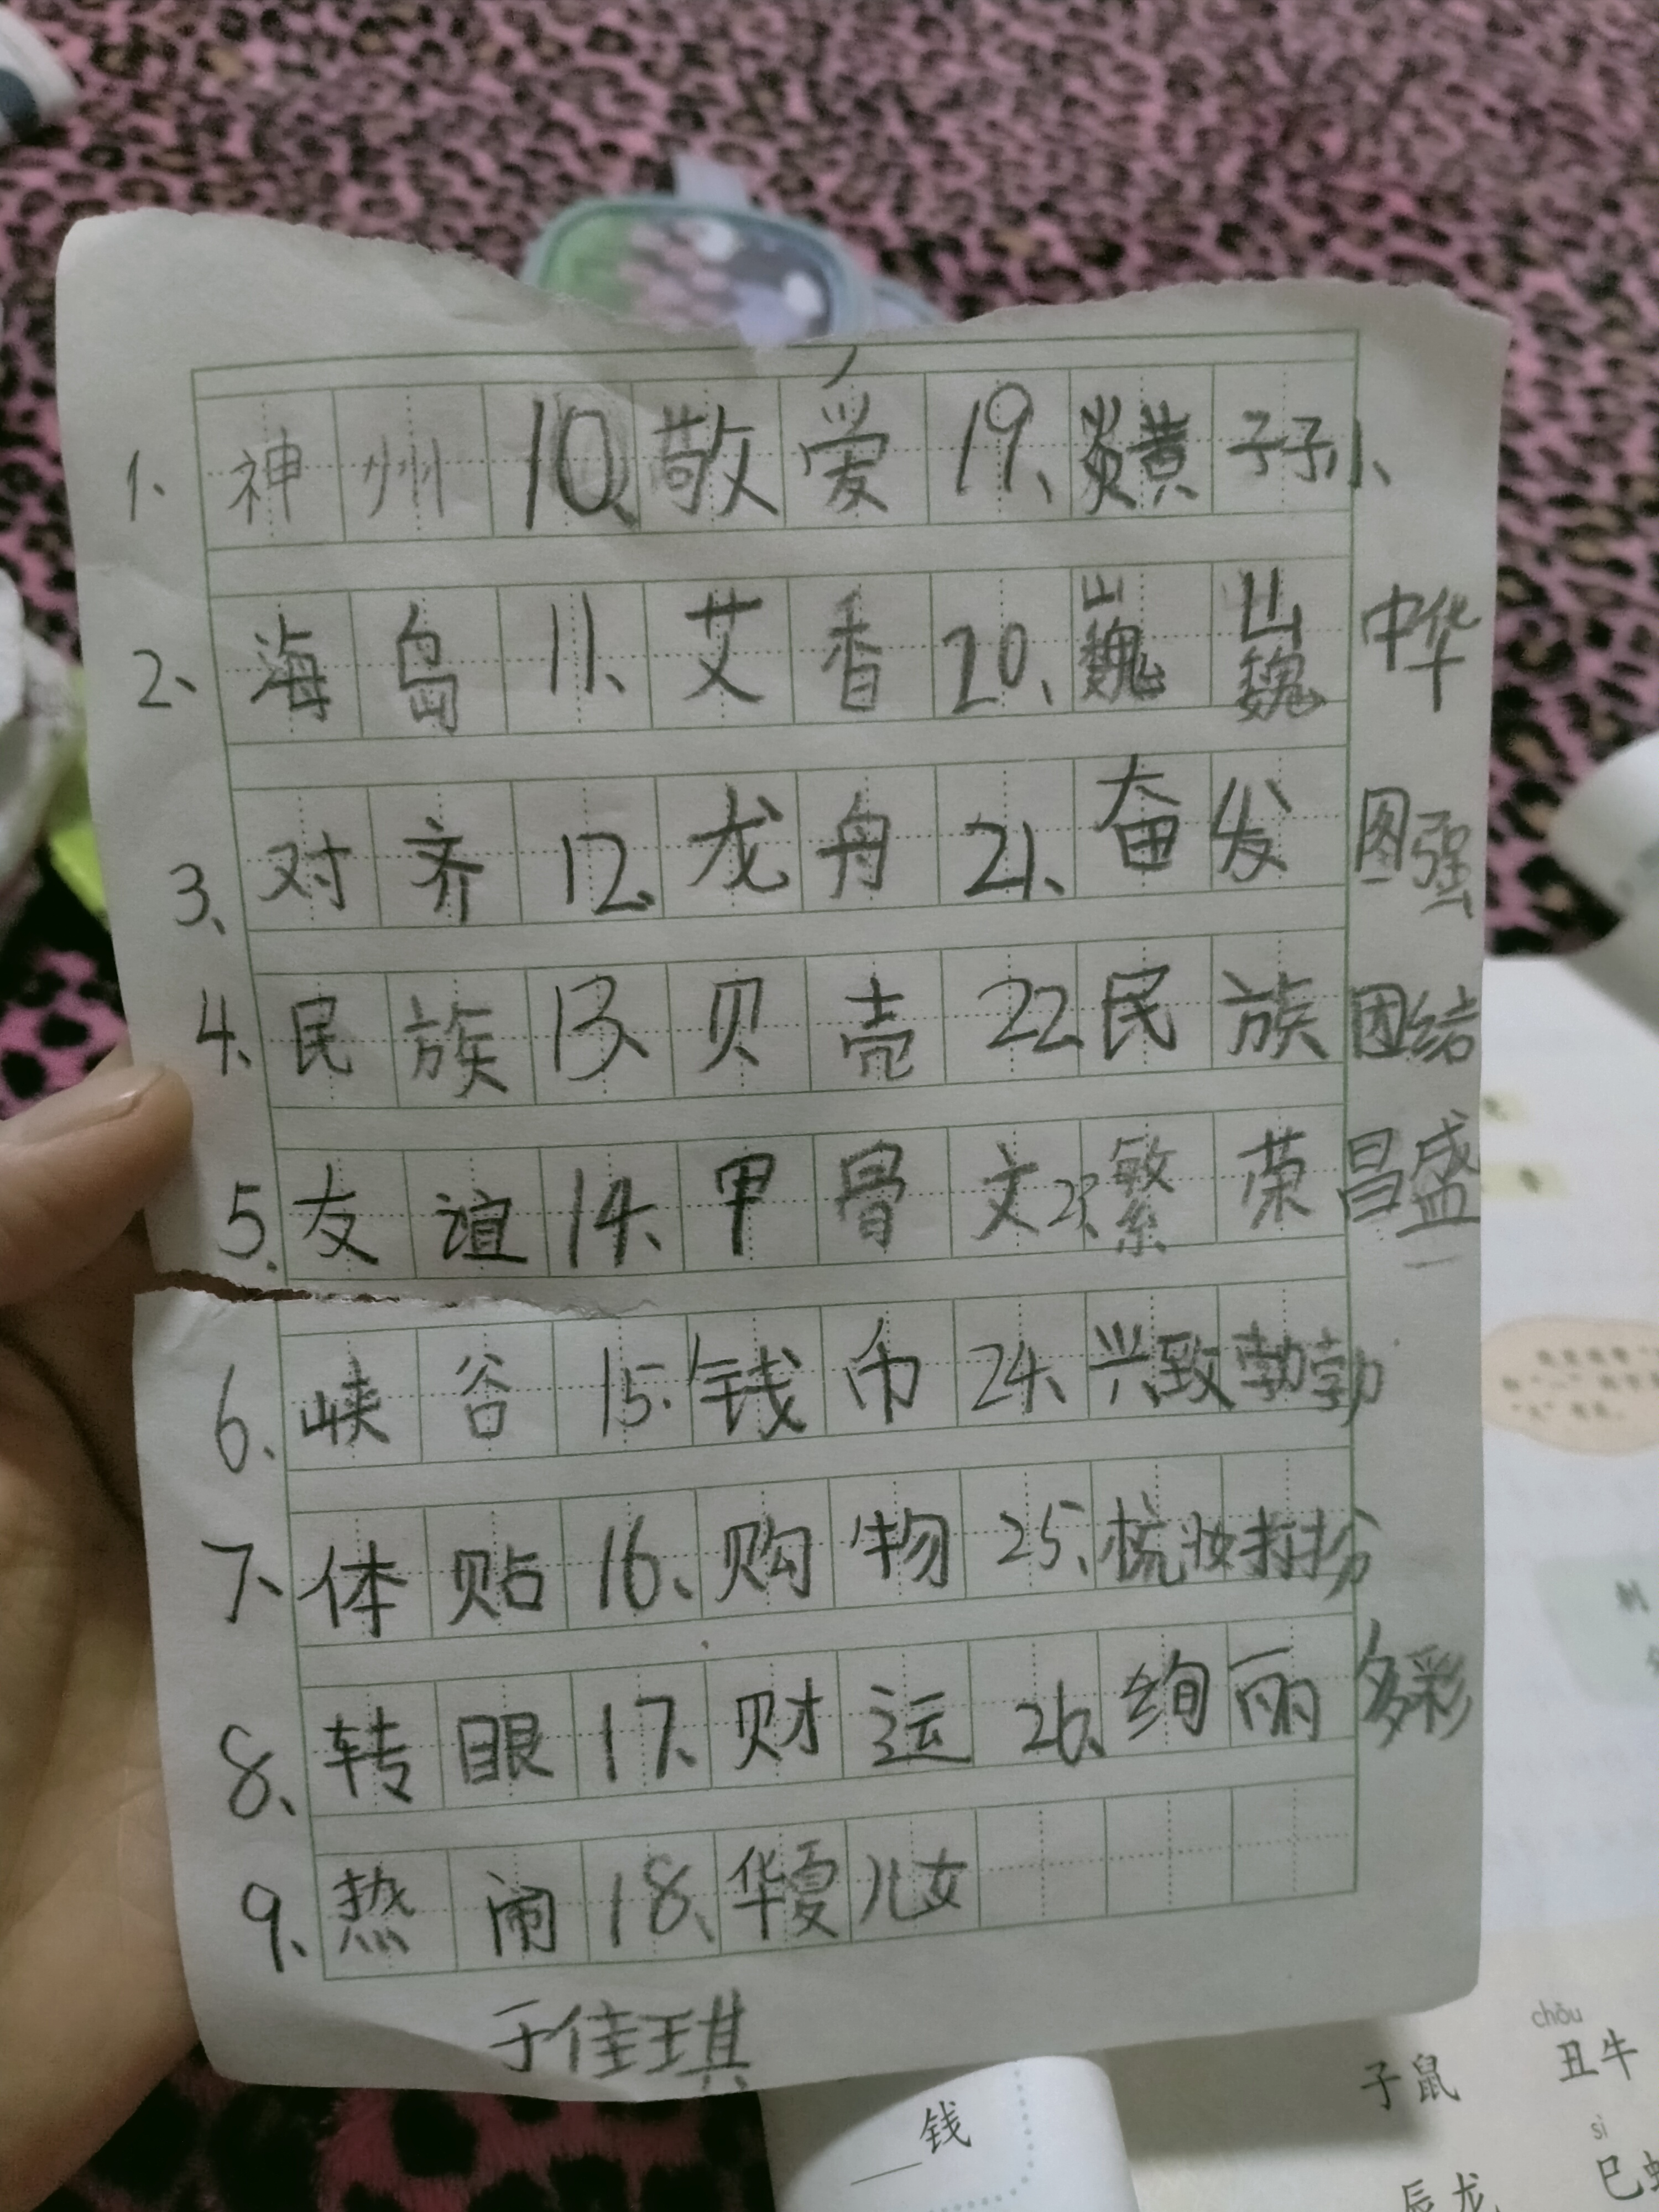 1、神州 10、敬爱 19、炎黄子孙
2、海岛 11、艾香 20、巍巍中华
3、对齐 12、龙舟 21、奋发图强
4、民族 13、贝壳 22、民族团结
5、友谊 14、甲骨文 23、繁荣昌盛
6、峡谷 15、钱币 24、兴致勃勃
7、体贴 16、购物 25、梳妆打扮
8、转眼 17、财运 26、绚丽多彩
9、热闹 18、华夏儿女
于佳琪
钱
chǒu
子鼠 丑牛
sì
辰龙 巳